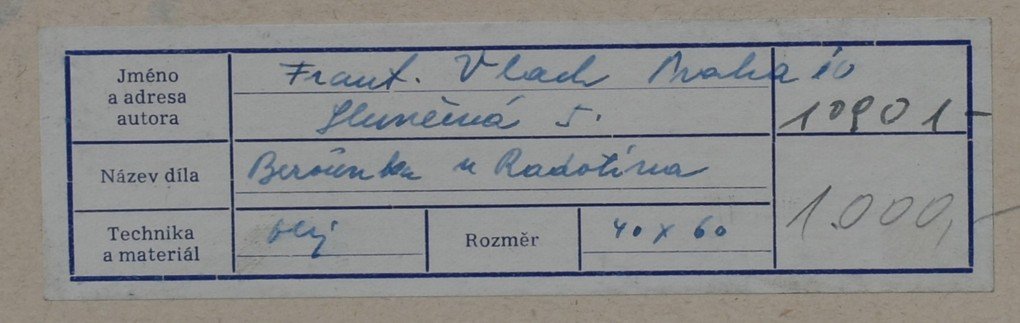 Jméno
a adresa
autora
Frant. Vlach Praha 10
Slunečná 5.
10901-
Název díla
Berounka u Radotína
Technika
a materiál
olej
Rozměr
40 x 60
1.000,-